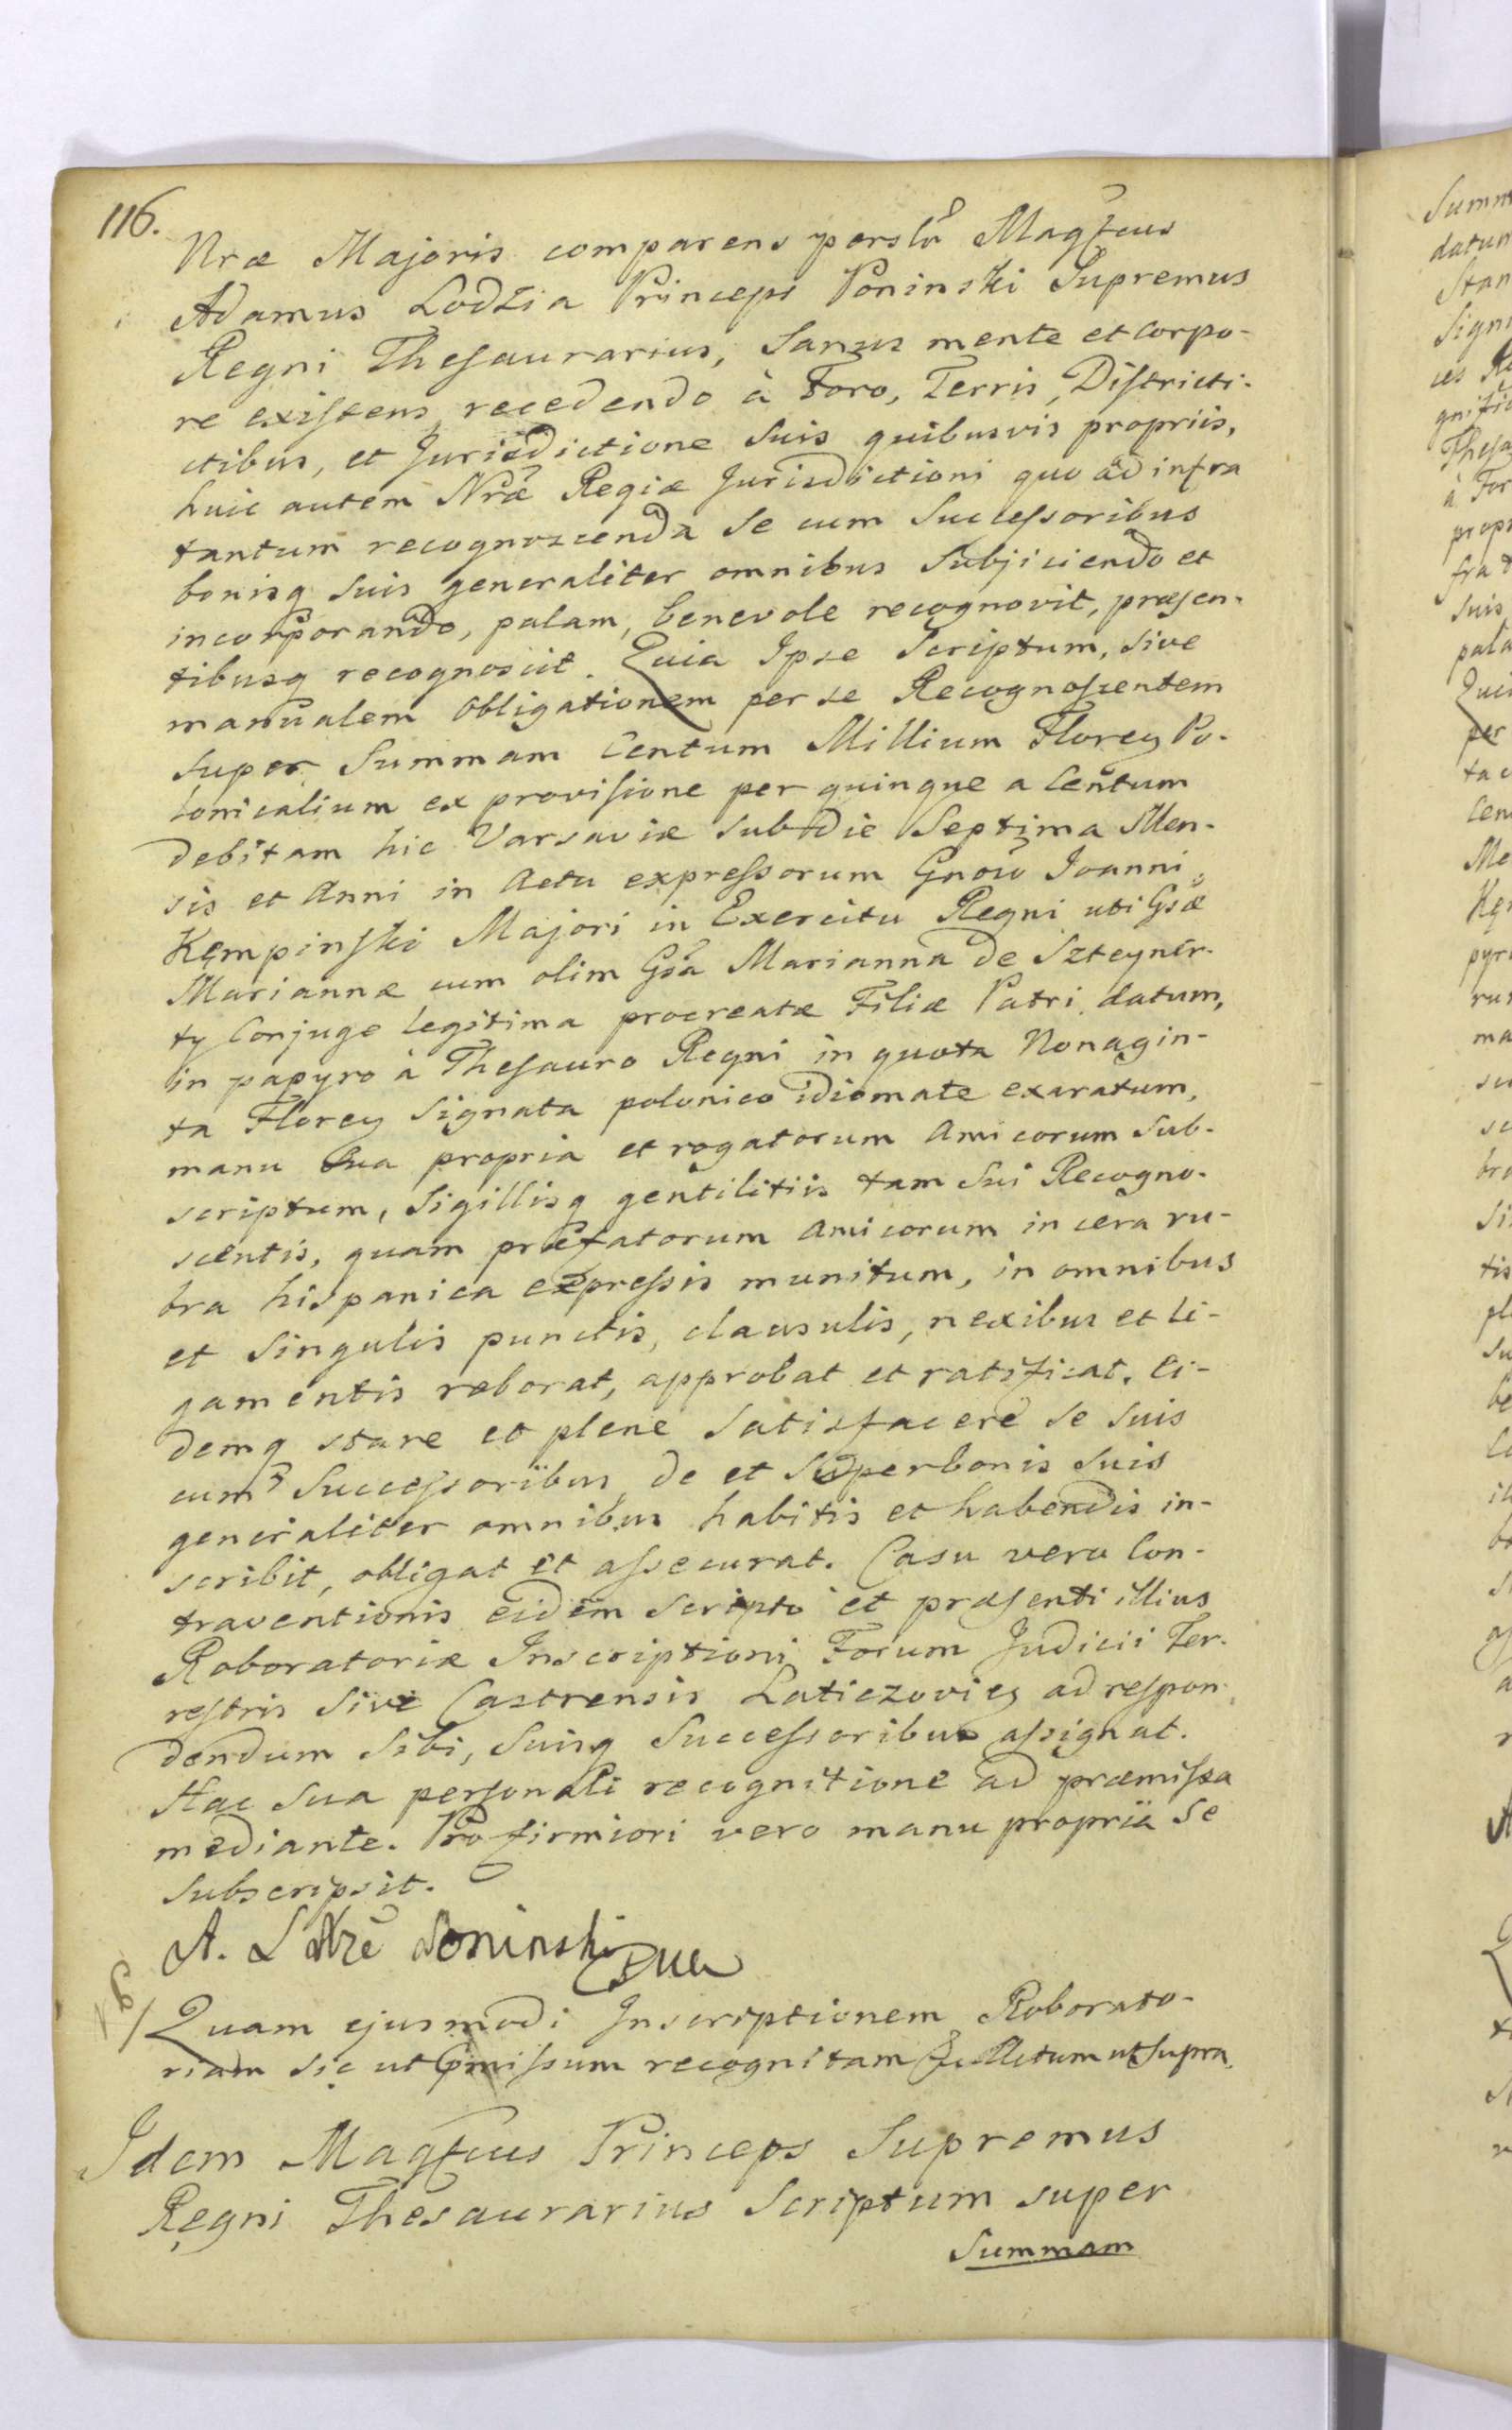 116.
Nræ Majoris comparens persłr Magfcus
Adamus Lodzia Princeps Poninski Supremus
Regni Thesaurarius, Sanus mente et Corpo-
re existens recedendo à Foro, Terris, Districti-
ctibus, et Jurisdictione Suis quibusvis propriis,
huic autem Nræ Regiæ Jurisdictioni quo ad infra
tantum recognoscenda Se cum Successoribus
bonisq suis generaliter omnibus Subjiciendo et
incorporando, palam, benevole recognovit, præsen-
tibusq recognoscit. Quia Ipse Scriptum, sive
manualem Obligationem per se Recognoscentem
Super Summam Centum Millium Floreų Po-
lonicalium ex provisione per quinque a Centum
debitam hic Varsaviæ sub die Septima Men-
sis et Anni in Actu expressorum Gnoso Joanni
Kempinski Majori in Exercitu Regni uti Gsæ
Mariannæ cum olim Gsa Marianna de Szteyner-
ty Conjuge legitima procreatæ Filiæ Patri datum,
in papyro à Thesauro Regni in quota Nonagin-
ta Floreų Signata polonico idiomate exaratum,
manu Sua propria et rogatorum Amicorum Sub-
scriptum, Sigillisq gentilitiis tam Sui Recogno-
scentis, quam præfatorum Amicorum in cera ru-
bra hispanica expressis munitum, in omnibus
et Singulis punctis, clausulis, nexibus et li-
gamentis roborat, approbat et ratificat. Ei-
demq stare et plene Satisfacere se suis
cum Successoribus, de et Super bonis Suis
generaliter omnibus habitis et habendis in-
scribit, obligat et assecurat. Casu vero Con-
traventionis eidem Scripto et præsenti illius
Roboratoriæ Inscriptioni Forum Judicii Ter-
restris Sive Castrensis Laticzovieų ad respon-
dendum Sibi, Suisq Successoribus assignat.
Hac Sua personali recognitione ad præmissa
mediante. Pro firmiori vero manu propria Se
Subscripsit.
A. L Poninski
Quam ejusmodi Inscriptionem Roborato-
riam sic ut pmissum recognitam Actum ut Supra.
Idem Magfcus Princeps Supremus
Regni Thesaurarius Scriptum super
Summam